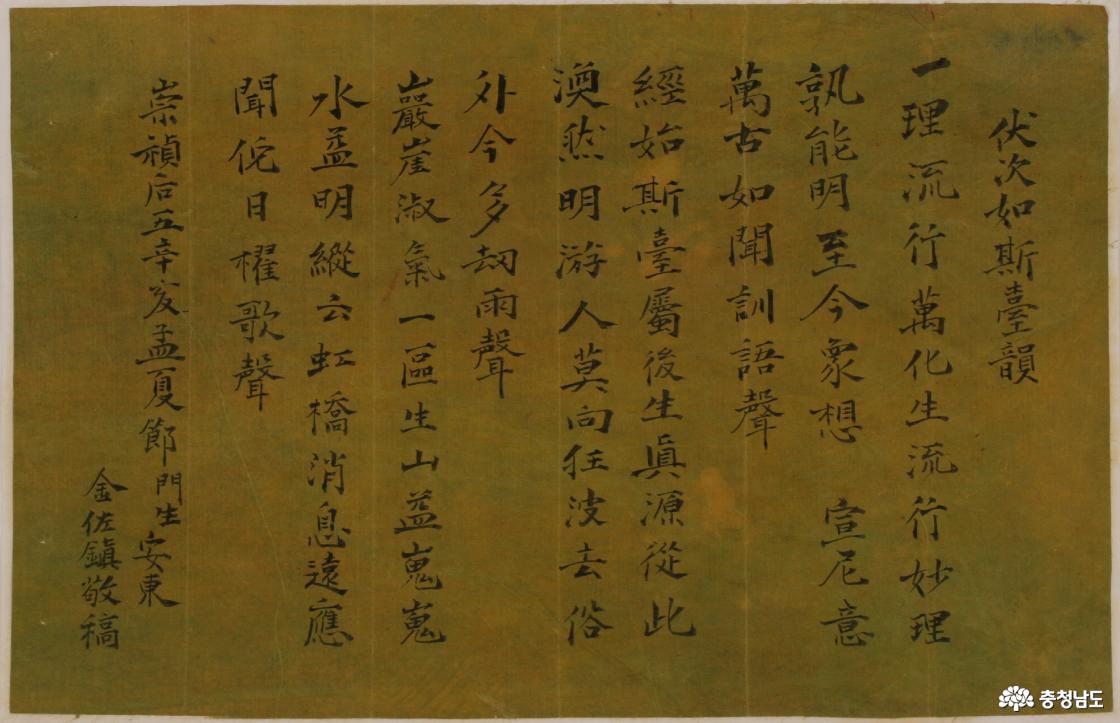 伏次如斯臺韻
一理流行萬化生流行妙理
孰能明至今象想 宣尼意
萬古如聞訓語聲
經始斯臺屬後生眞源從此
渙然明游人莫向狂波去俗
外今多刼雨聲
巖崖淑氣一區生山益嵬嵬
水益明縱云虹橋消息遠應
聞佗日櫂歌聲
崇禎后五辛亥孟夏節門生安東
金佐鎭敬稿
충청남도